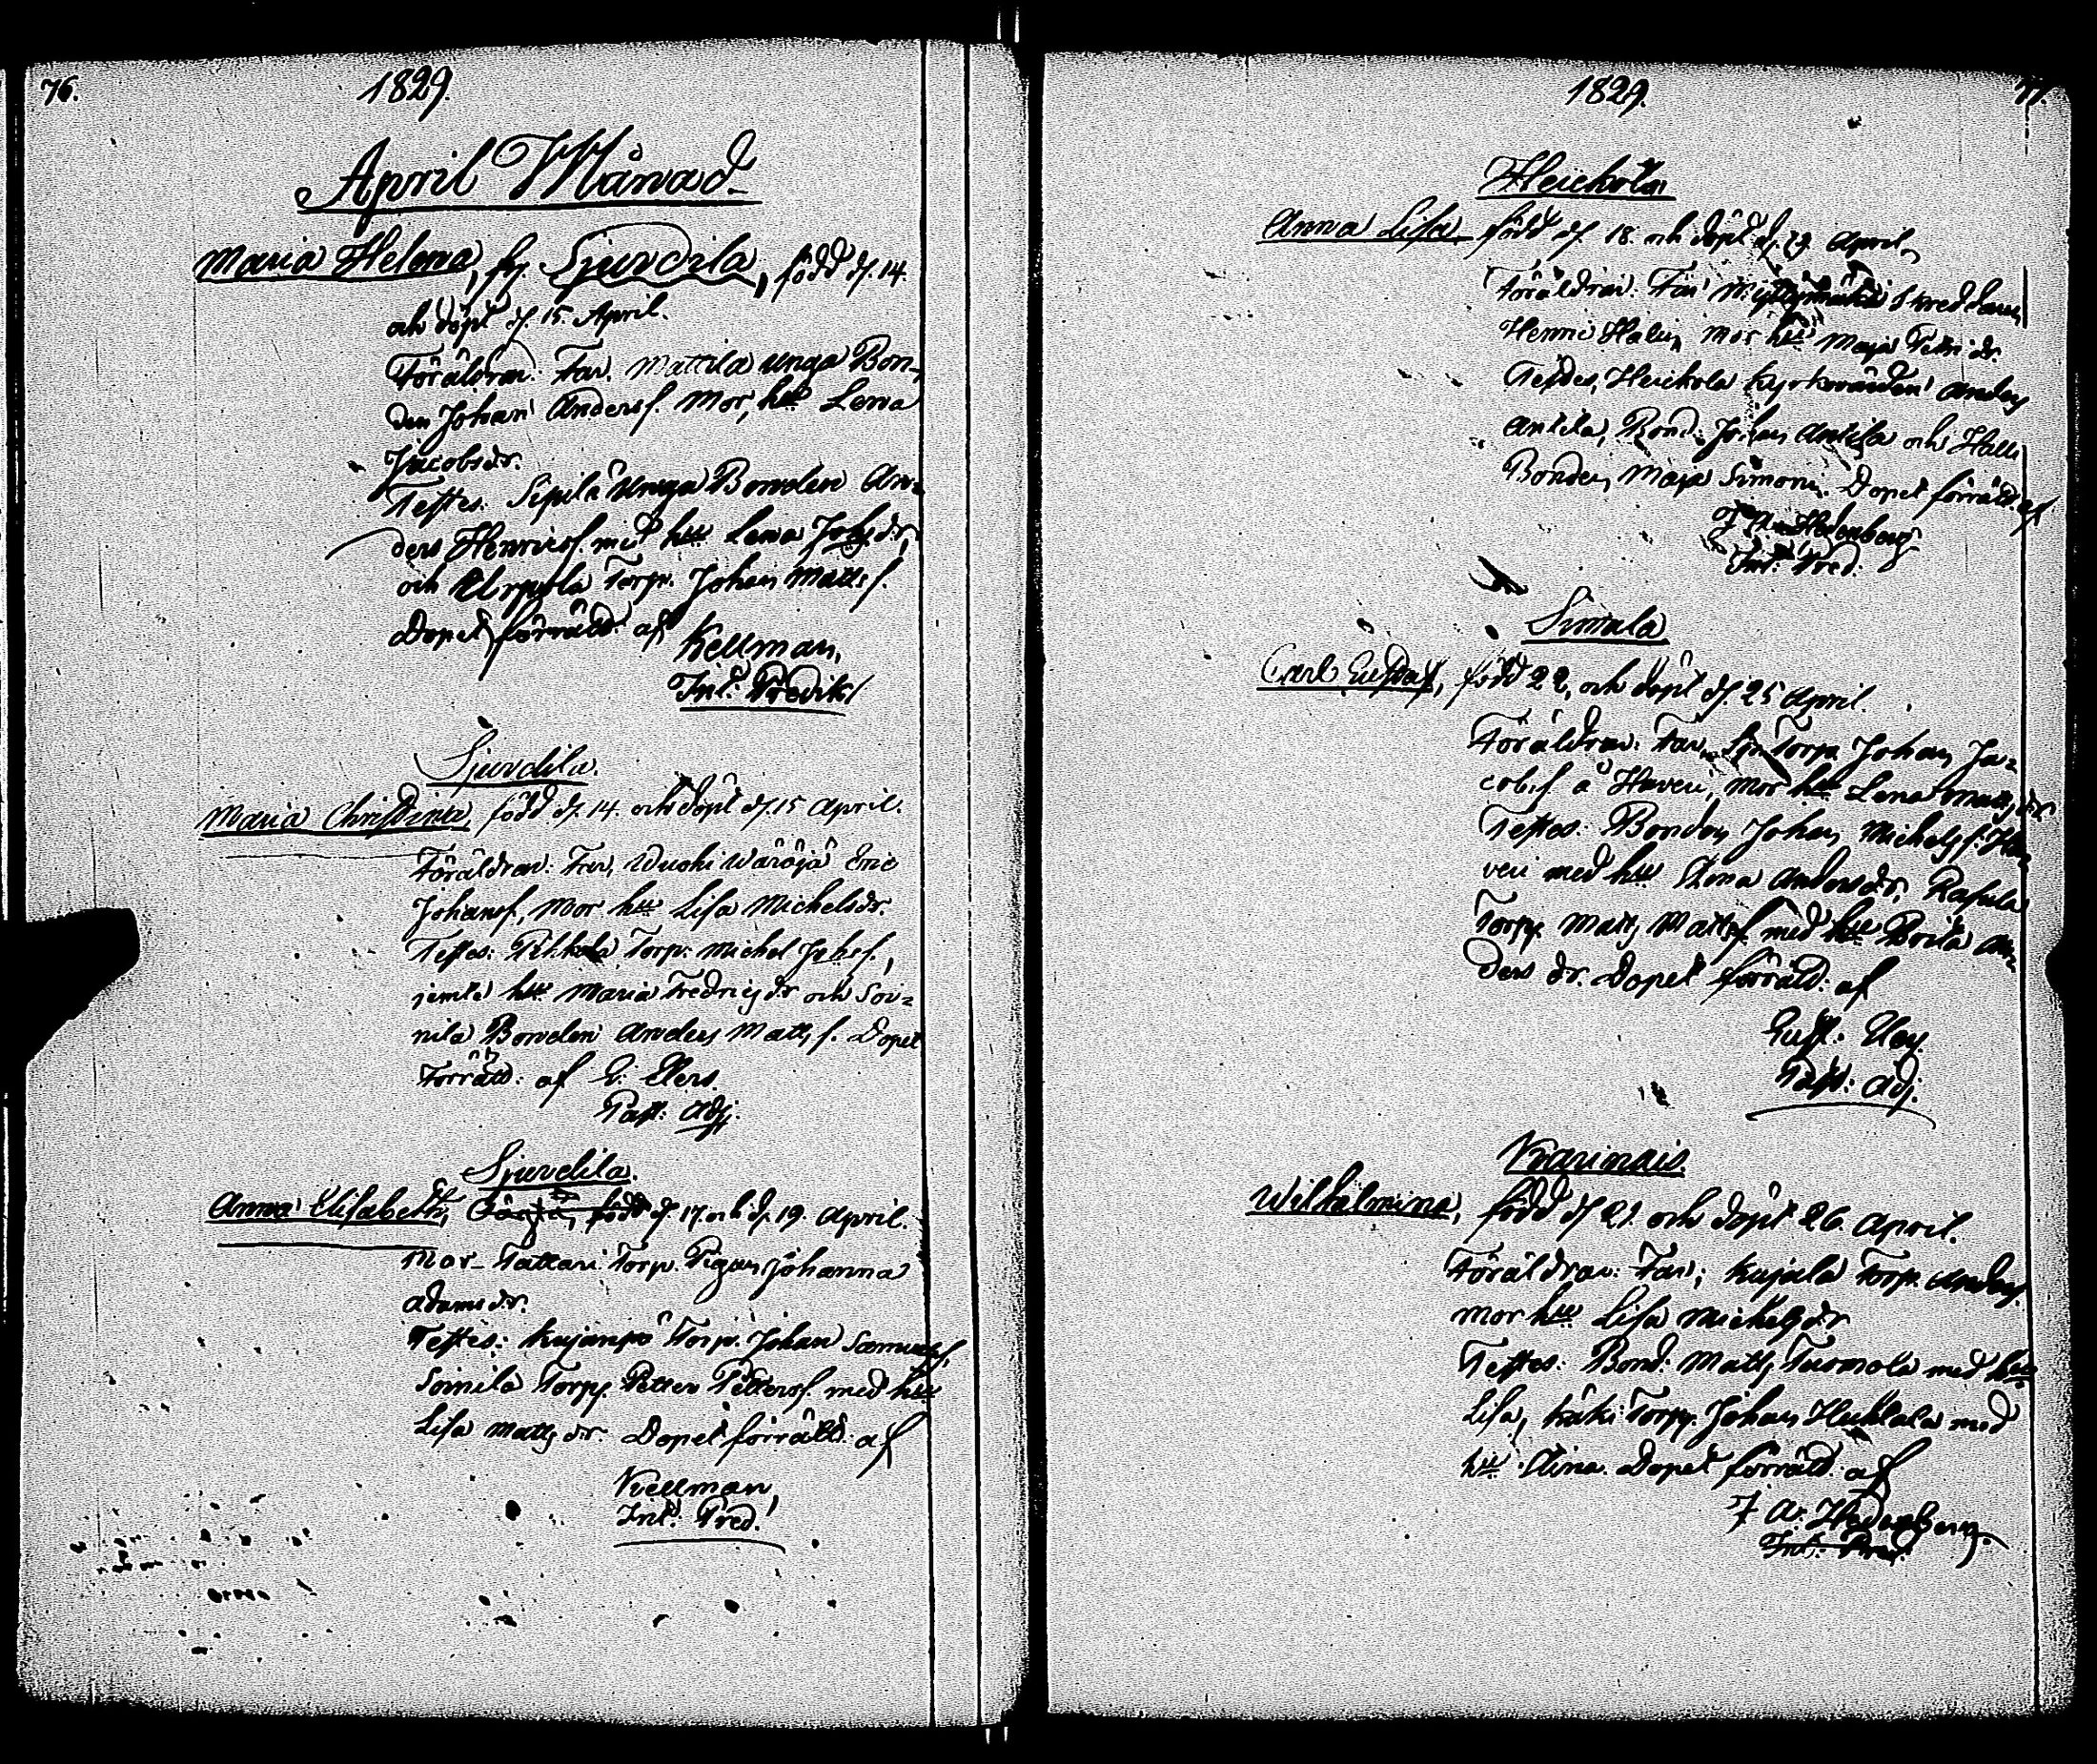 76.
1829.
April Månad
Maria Helena, fr. Sjurdila, född d. 14.
och döpt d. 15. April.
Föräldrar: Far. Mattila unga Bon-
den Johan Anders f. Mor, hu Lena
Jacobsdr.
Testes: Sipilä unga Bonden An-
ders Henricsf. med hu Lena Johsdr,
och Torp. Johan Matts f.
Dopet förrätt. af Kellman,
Int. Predik
Sjurdila.
Maria Christina, född d. 14. och döpt d. 15 April.
Föräldrar: Far, Eric
Johansf, Mor hu Lisa Michelsdr.
Testes: Torp. Michel Johsf.,
jemte hu Maria Fredricsdr och Soi-
nila Bonden Anders Matts f. Dopet
Förrätt: af G. Elers.
Past: Adj.
Sjurdila.
Anna Elisabeth, född d. 17 och d. 19. April.
Mor- Tattari Torp. Pigan Johanna
Adamsdr.
Testes: Kujanpä Torp. Johan Samuelsf,
Soinila Torp. Petter Pettersf. med hu
Lisa Matts dr. Dopet förrätt. af
Kellman,
Int: Pred.
1829.
77.
Heickola
Anna Lisa född d. 18. och döpt d. 19. April,
Föräldrar: Far Skreddaren
Henric Halin, Mor hu Maja Petri dr.
Testes, Heickola Kyrkovärden Anders
Antila, Bond. Johan Antila och Halli
Bonden, Maja Simons. Dopet förrätt. af
J A. Hedenberg
Int: Pred.
Simula
Carl Gustaf, född 22, och döpt d. 25 April.
Föräldrar: Far, Torp. Johan Ja-
cobsf. å Haveri, Mor hu Lena Mattsdr.
Testes: Bonden Johan Michelsf. Ha-
veri med hu Stina Andersdr, Rasula
Torp. Matts Mattsf. med hu Brita An-
ders dr. Dopet förrätt: af
Gust. Hey.
Past: Adj.
Krannais.
Wilhelmina, född d. 21. och döpt 26. April.
Föräldrar: Far; Kujala Torp. Anders,
Mor hu Lisa Michelsdr
Testes: Bond. Matts Turmola med hu
Lisa, Käki Torp. Johan Huhtala med
hu Stina. Dopet förrätt. af
J A. Hedenberg.
Int: Pred.